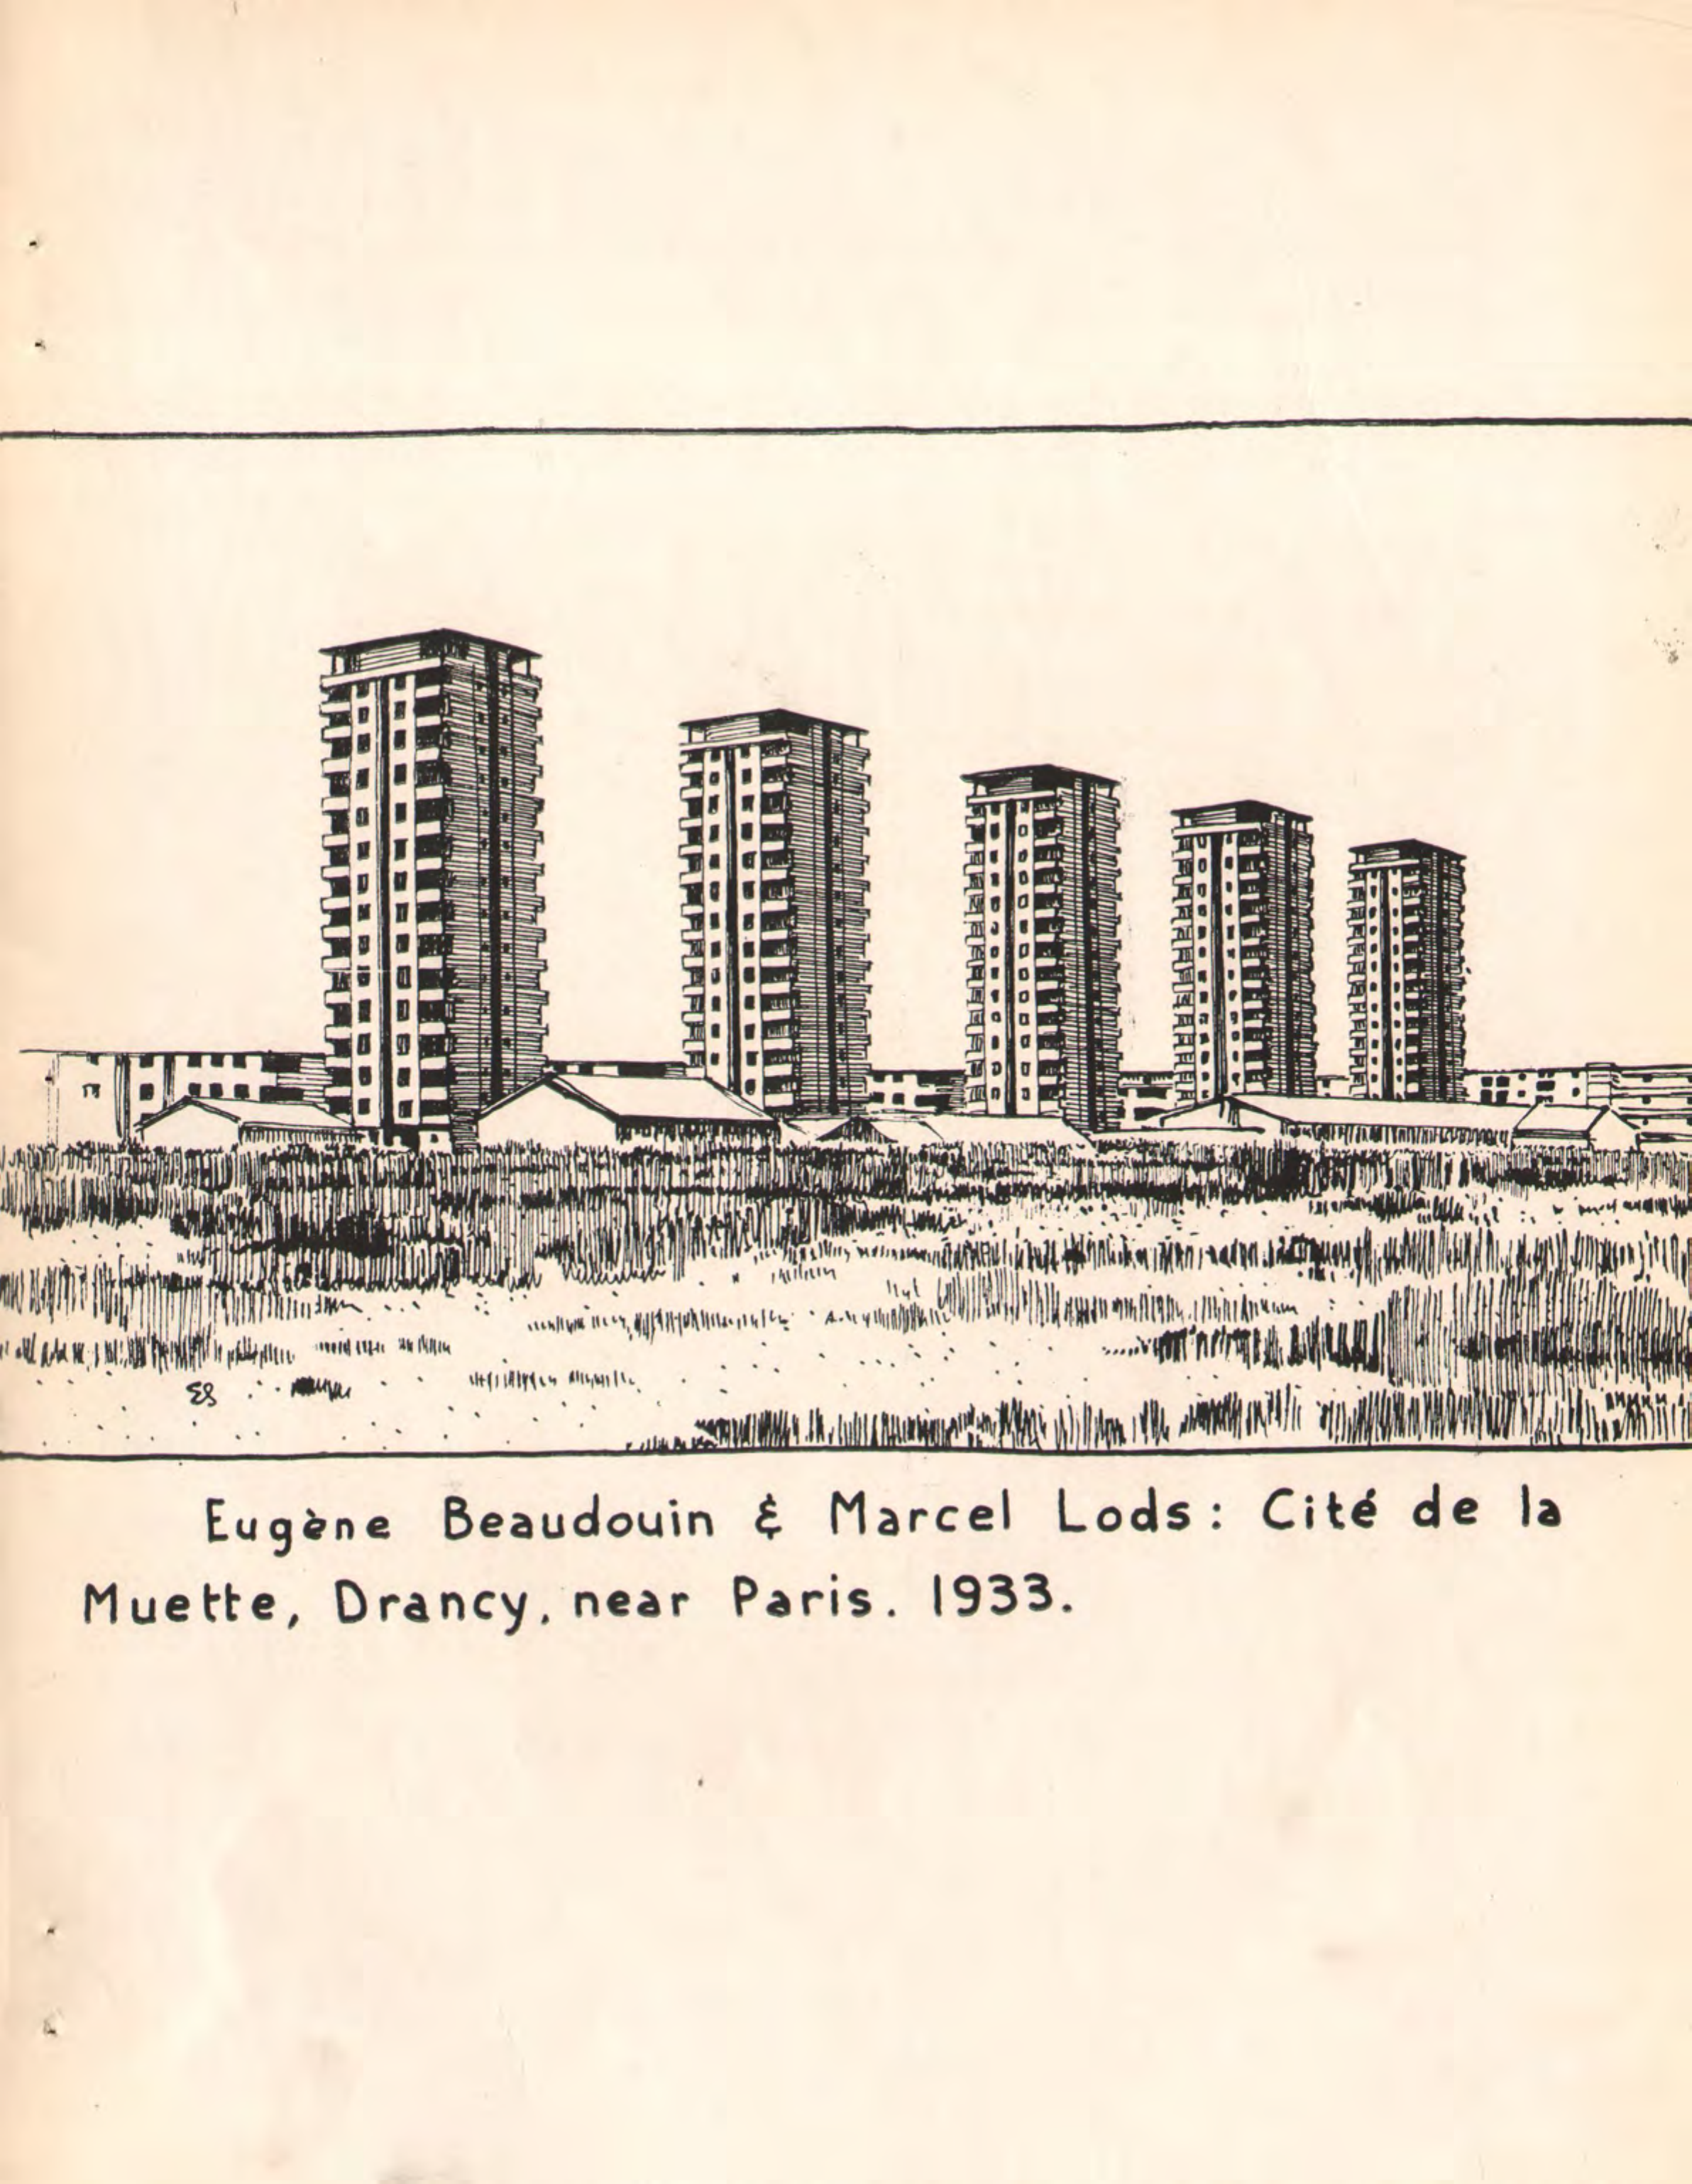 ES
Eugène Beaudouin & Marcel Lods: Cité de la
Muette, Drancy, near Paris. 1933.